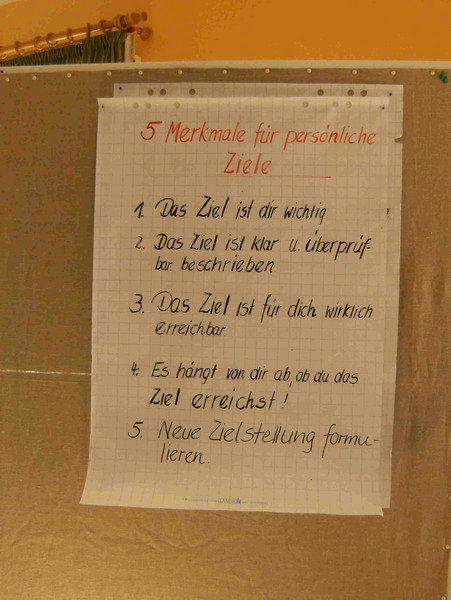 5 Merkmale für persönliche
Ziele
1. Das Ziel ist dir wichtig.
2. Das Ziel ist klar u. Überprüf-
bar beschrieben.
3. Das Ziel ist für dich wirklich
erreichbar.
4. Es hängt von dir ab, ob du das
Ziel erreichst!
5. Neue Zielstellung formu-
lieren.